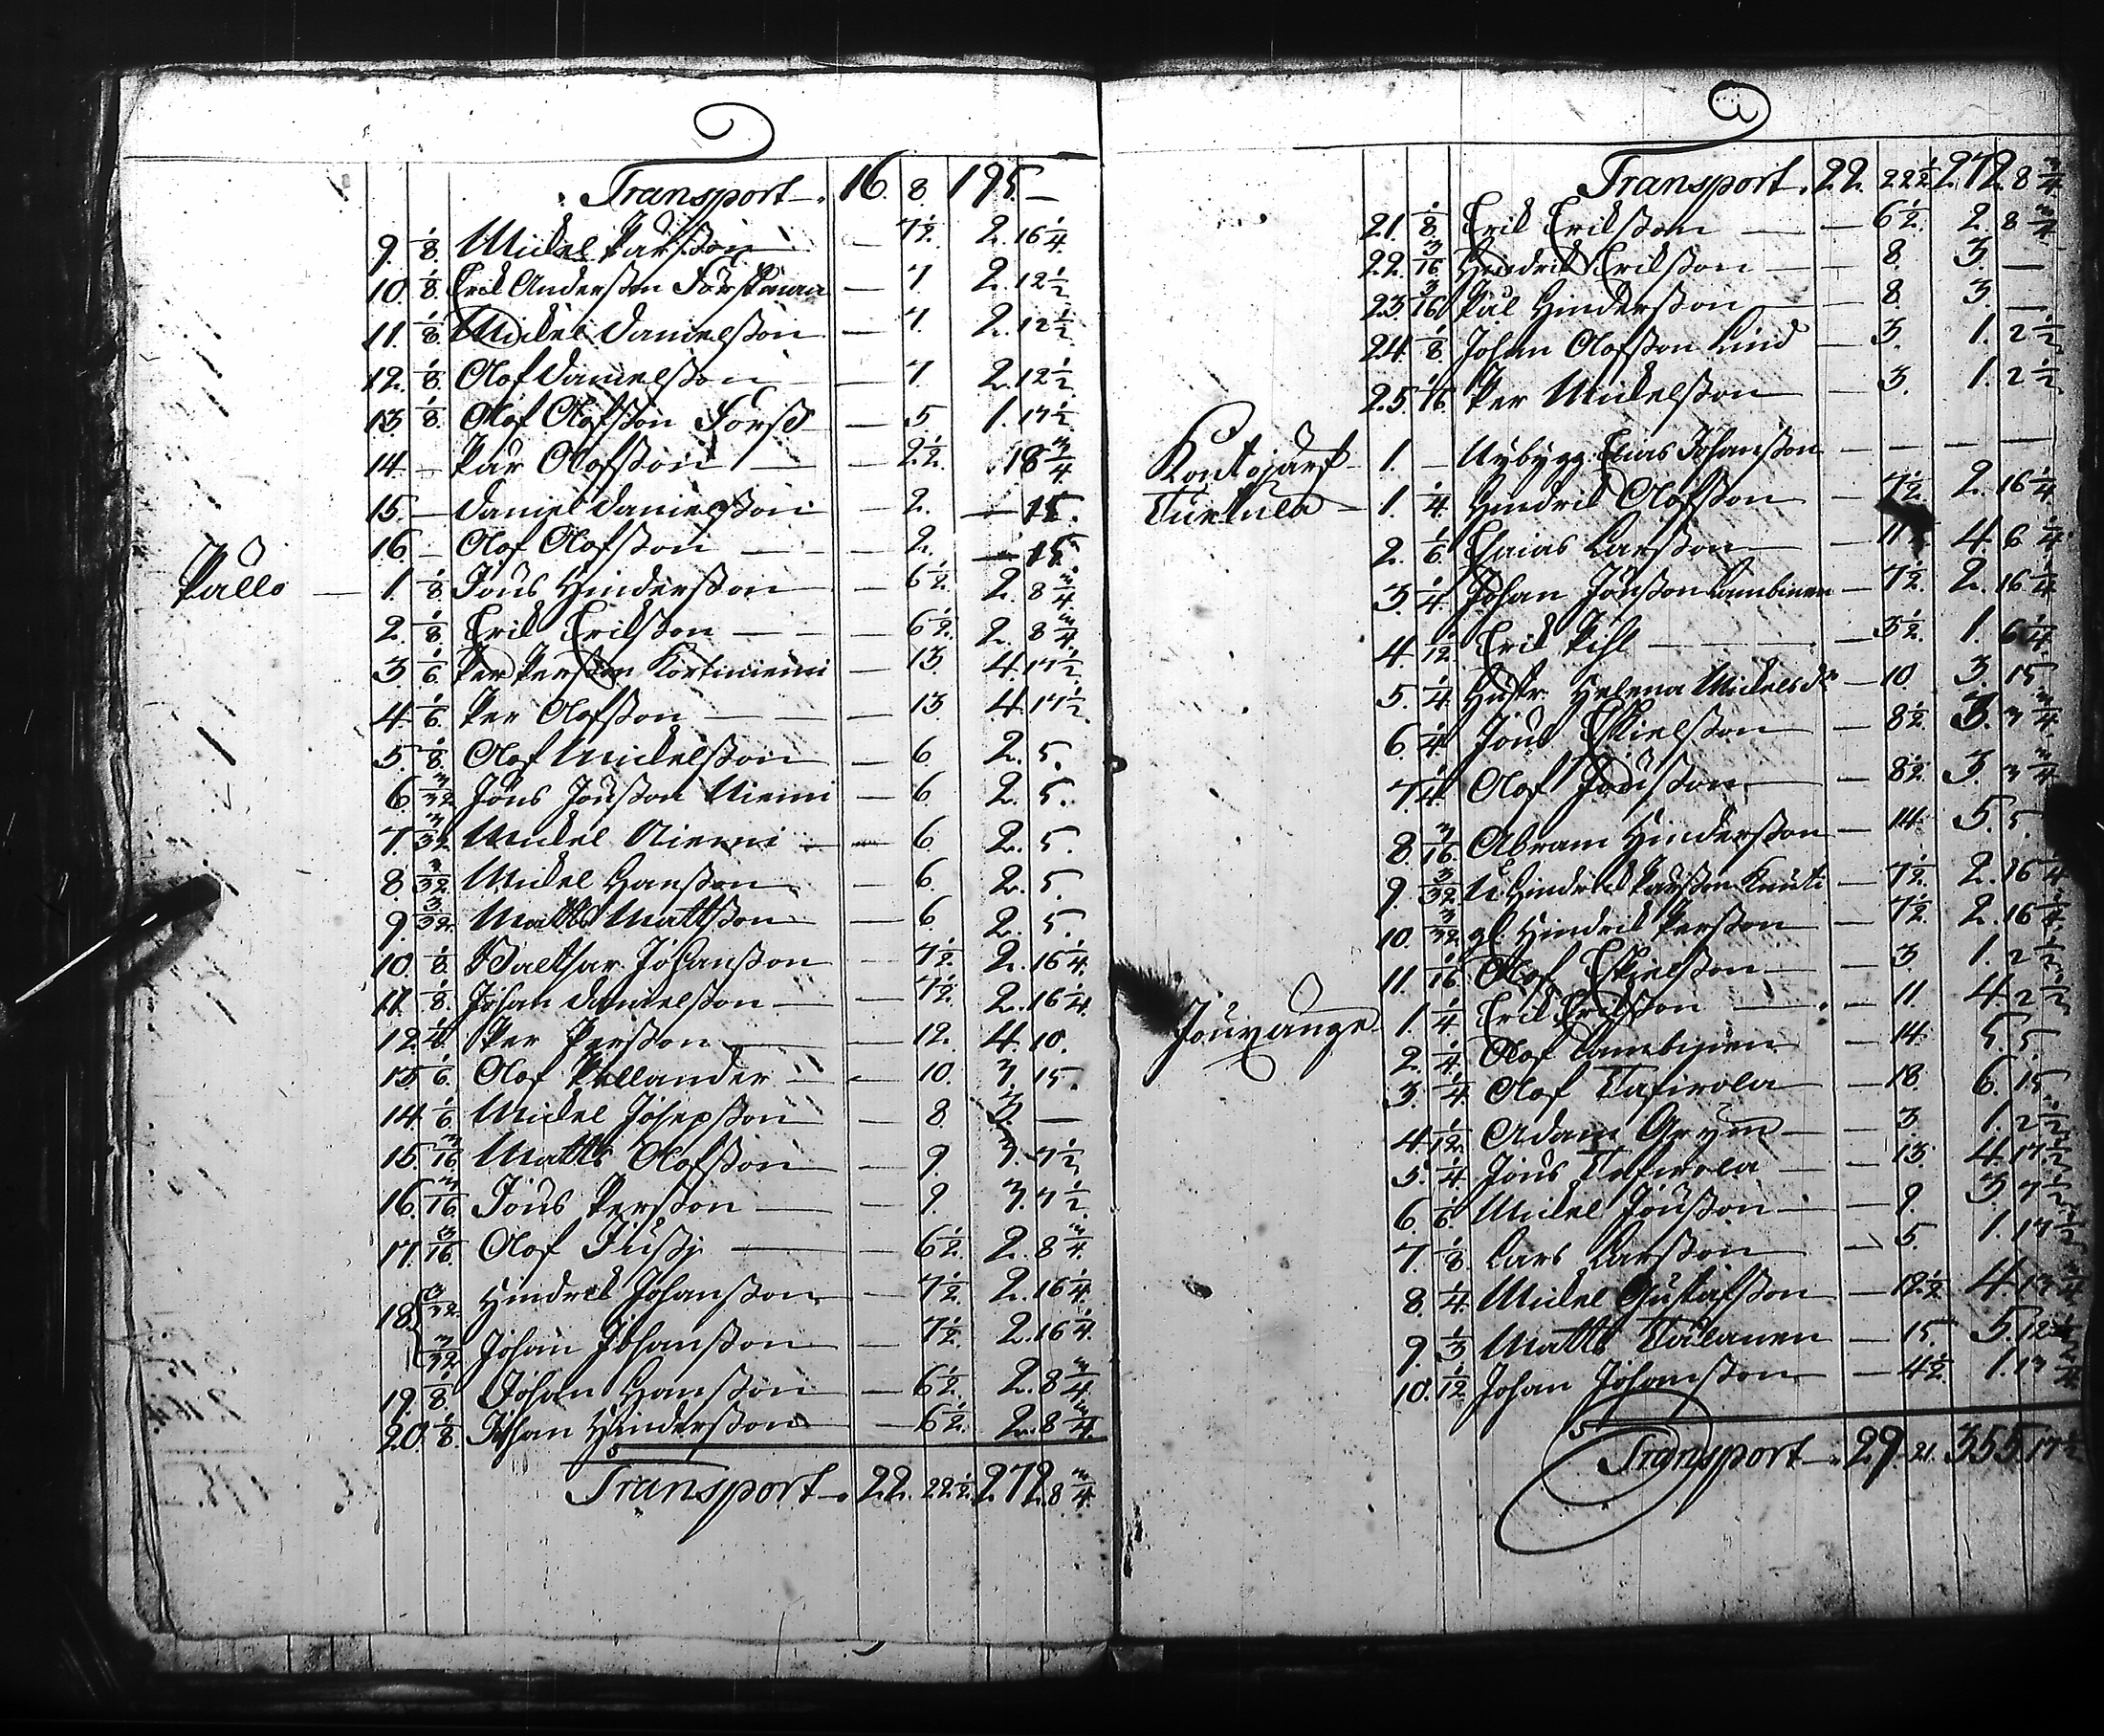 Transport 16. 8. 195. —
9. 1/8. Mickel Pärsson — 7 1/2. 2. 16 1/4.
10. 1/8. Erik Andersson — 7 2. 12 1/2.
11. 1/8. Mickel Danielsson — 7. 2. 12 1/2.
12. 1/8. Olof Danielsson — 7 2. 12 1/2.
13. 1/8. Olof Olofsson Forss — 5 1. 17 1/2.
14. — Pär Olofsson — 2 1/2. 18 3/4
15. — Daniel Danielsson — 2. — 15.
16 — Olof Olofsson — 2. — 15.
Pallo — 1. 1/8. Jöns Hindersson — 6 1/2. 2. 8 3/4.
2. 1/8. Erik Eriksson — 6 1/2. 2. 8 3/4.
3. 1/6. Per Persson Kortniemi — 13. 4. 17 1/2.
4. 1/6. Per Olofsson — 13. 4. 17 1/2.
5. 1/8. Olof Mickelsson — 6. 2. 5.
6. 3/32. Jöns Jönsson Niemi — 6. 2. 5.
7. 3/32. Mickel Niemi — 6. 2. 5.
8. 3/32. Mickel Hansson — 6. 2. 5.
9. 3/32. Matts Mattsson — 6. 2. 5.
10. 1/8. Baltsar Johansson — 7 1/2. 2. 16 1/4.
11. 1/8. Johan Danielsson — 7 1/2. 2. 16 1/4.
12. 1/4. Per Persson — 12. 4. 10.
13. 1/6. Olof Pellander — 10. 3. 15.
14. 1/6. Mickel Josepsson — 8 3. —
15. 3/16. Matts Olofsson — 9. 3. 7 1/2.
16. 3/16. Jöns Persson — 9. 3. 7 1/2.
17. 3/16. Olof — 6 1/2. 2. 8 3/4.
18. 3/32. Hindrik Johansson — 7 1/2. 2. 16 1/4.
3/32 Johan Johansson — 7 1/2. 2. 16 1/4.
19. 1/8. Johan Hansson — 6 1/2. 2. 8 3/4.
20. 1/8. Johan Hindersson — 6 1/2. 2. 8 3/4.
Transport 22. 22 1/2. 272. 8 3/4.
Transport. 22. 22 1/2. 272. 8 3/4
21. 1/8. Erik Eriksson — 6 1/2. 2. 8 3/4
22. 3/16 Hindrik Eriksson — 8. 3. —
23. 3/16 Pål Hindersson — 8. 3. —
24. 1/8. Johan Olofsson Lind — 3. 1. 2 1/2
25. 1/16. Per Mickelsson — 3. 1. 2 1/2
Kontojärf 1. — Nybygg. Elias Johansson — — —
Turtula — 1. 1/4. Hindrik Olofsson — 7 1/2. 2. 16 1/4
2. 1/6. Esaias Larsson — 11 4. 6 1/4
3. 1/4. Johan Jönsson Lambinen — 7 1/2. 2. 16 1/4
4. 1/12. Erik Pihl — 3 1/2. 1. 6 1/4
5. 1/4. Hustr. Helena Mickelsdr — 10. 3. 15
6. 1/4. Jöns Eskielsson — 8 1/2. 3. 3 3/4.
7. 1/4. Olof Jönsson — 8 1/2. 3. 3 3/4
8. 3/16. Abram Hindersson — 14. 5. 5.
9. 3/32. Hindrik Pärsson Knuti — 7 1/2. 2. 16 1/4
10. 3/32. gl. Hindrik Persson — 7 1/2. 2. 16 1/4
11. 1/16 Olof Eskielsson — 3. 1. 2 1/2
Jouxange. 1. 1/4. Erik Eriksson — 11 4. 2 1/2
2. 1/4. Olof Lambinen — 14. 5. 5.
3. 1/4. Olof Tafirola — 18 6. 15.
4. 1/12. Adam Grym — 3 1. 2 1/2
5. 1/4. Jöns Tafirola — 13. 4. 17 1/2
6. 1/6. Mickel Jönsson — 9. 3. 7 1/2
7. 1/8. Lars Larsson — 5. 1. 17 1/2
8. 1/4. Mickel Gustafsson — 12 1/2 4. 13 3/4
9. 1/3. Matts — 15. 5. 12 1/2
10. 1/12. Johan Johansson — 4 1/2. 1. 13 3/4
Transport 29. 21. 355. 17 1/2